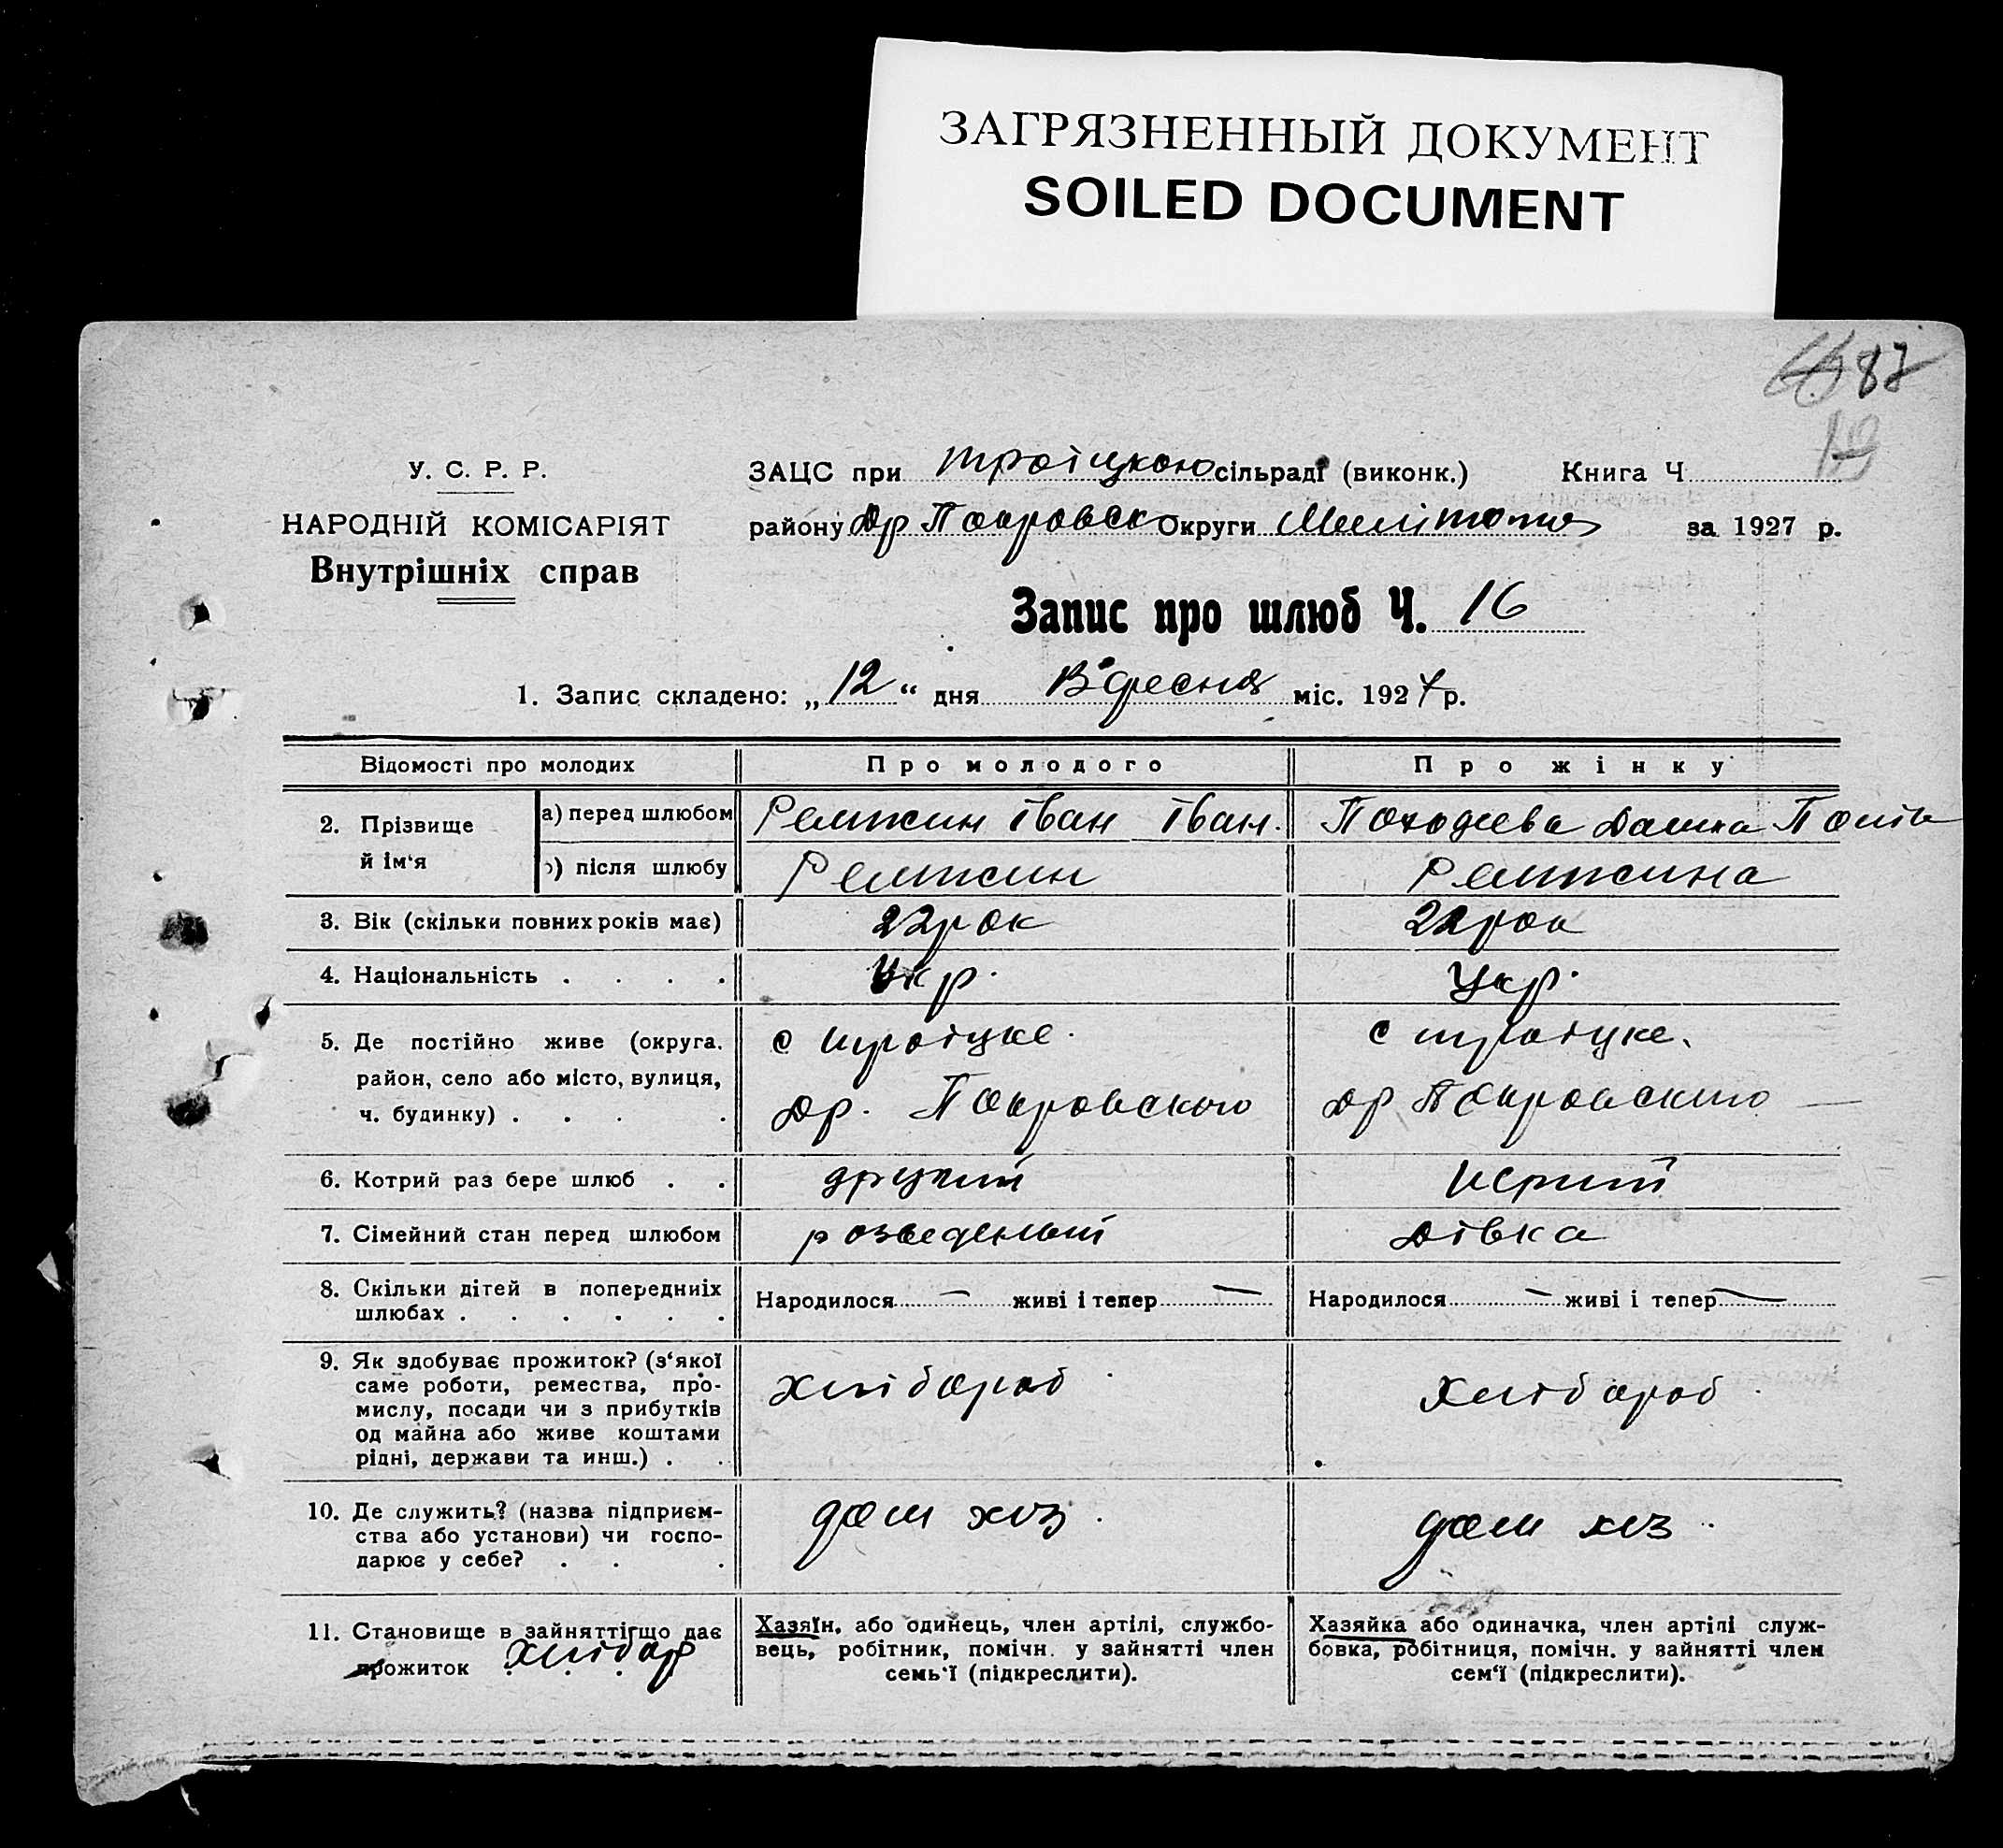 ЗАГРЯЗНЕННЫЙ ДОКУМЕНТ
SOILED DOCUMENT
87
У. С. Р. Р.
НАРОДНІЙ КОМІСАРІЯТ
Внутрішніх справ
ЗАЦС при Троіцкою сільраді (виконк.) Книга Ч
району Др Покровск Округи за 1927 р.
Запис про шлюб Ч. 16
1. Запис складено: „12“ дня Вдресня міс. 1927 р.
Відомості про молодих
Про молодого
Про жінку
2. Прізвище й ім‘я
а) перед шлюбом
Іван Іван.
б) після шлюбу
3. Вік (скільки повних років має)
22 рок
22 рок
4. Національність . . . .
Укр.
Укр.
5. Де постійно живе (округа, район, село або місто, вулиця, ч. будинку) . . . .
с Троіцке.
Др. Покровского
с Троіцке.
Др Покровского
6. Котрий раз бере шлюб . .
другий
перший
7. Сімейний стан перед шлюбом
розведеный
Дівка
8. Скільки дітей в попередниіх шлюбах . . . . . .
Народилося — живі і тепер —
Народилося — живі і тепер —
9. Як здобуває прожиток? (з‘якої саме роботи, ремества, промислу, посади чи з прибутків од майна або живе коштами рідні, держави та инш.) . .
хлібороб
хлібороб
10. Де служить? (назва підприємства або установи) чи господарює у себе? . . .
дом хоз.
дом хоз.
11. Становище в зайнятті що дає прожиток хлібор
Хазяїн, або одинець, член артілі, службо-
вець, робітник, помічн. у зайнятті член
семь‘ї (підкреслити).
Хазяйка або одиначка, член артілі служ-
бовка, робітниця, помічн. у зайнятті член
сем‘ї (підкреслити).